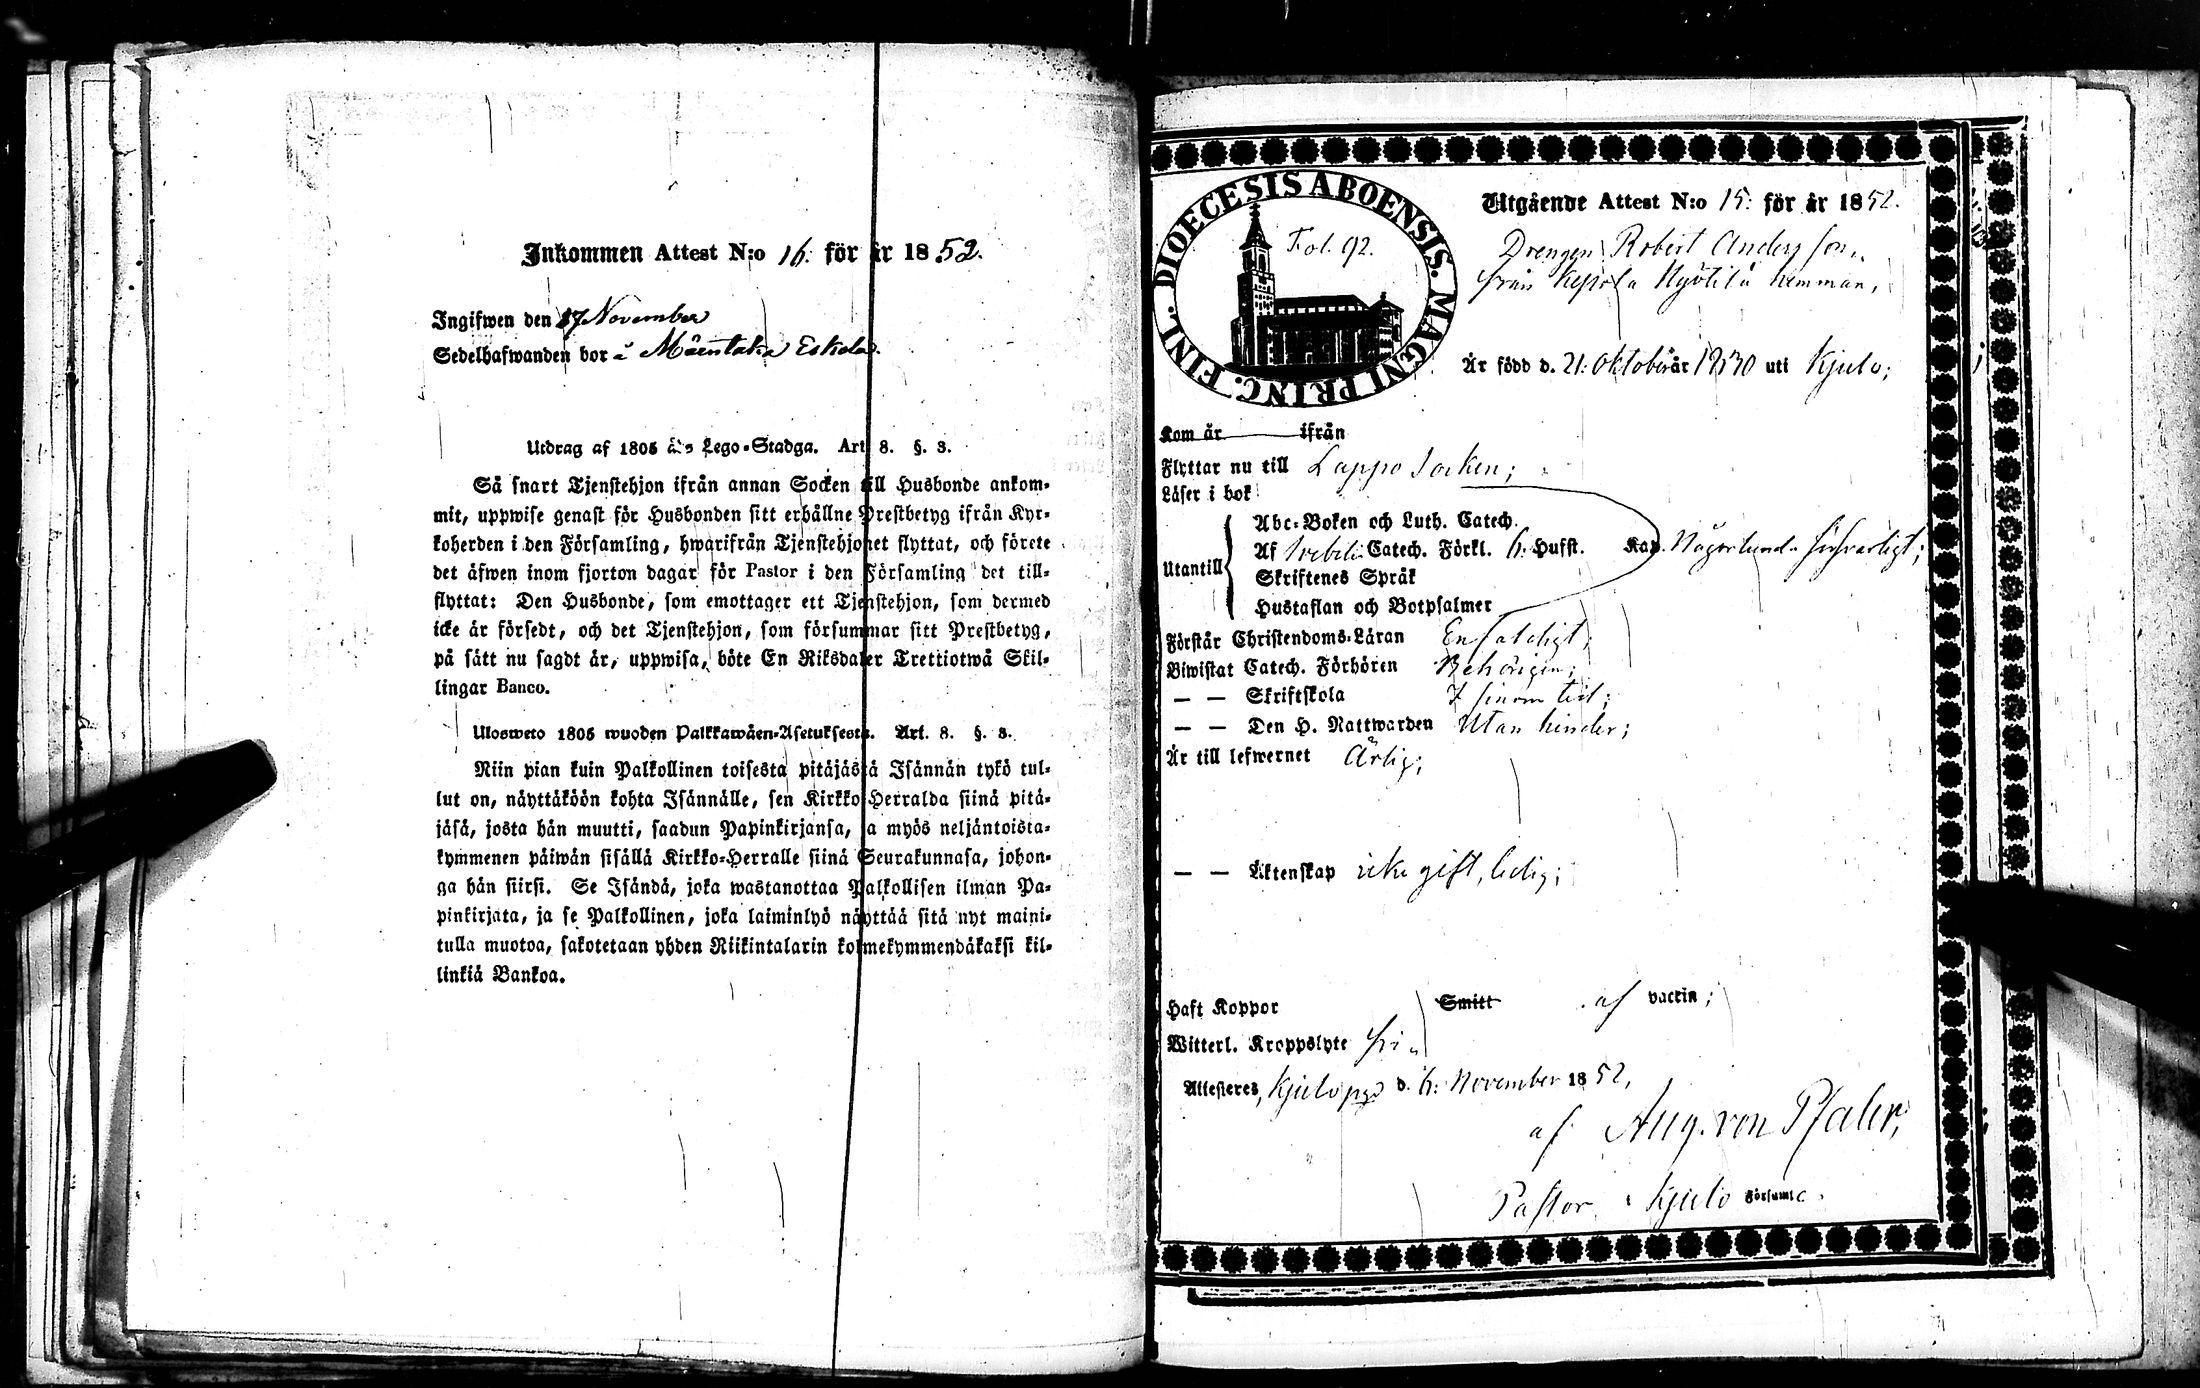 Inkommen Attest N:o 16: för år 1852.
Ingifwen den 17 November
Sedelhafwanden bor å Mäentaka Eskola.
Utdrag af 1805 års Lego-Stadga. Art. 8. §. 3.
Så snart Tjenstehjon ifrån annan Socken till Husbonde ankom-
mit, uppwise genast för Husbonden sitt erhållne Prestbetyg ifrån Kyr-
koherden i den Församling, hwarifrån Tjenstehjonet flyttat, och förete
det äfwen inom fjorton dagar för Pastor i den Församling det till-
flyttat: Den Husbonde, som emottager ett Tjenstehjon, som dermed
icke är försedt, och det Tjenstehjon, som försummar sitt Prestbetyg,
på sätt nu sagdt är, uppwisa, böte En Riksdaler Trettiotwå Skil-
lingar Banco.
Ulosweto 1805 wuoden Palkkawäen-Asetuksesta. Art. 8. §. 3.
Niin pian kuin Palkollinen toisesta pitäjästä Isännän tykö tul-
lut on, näyttäköön kohta Isännälle, sen Kirkko-Herralda siinä pitä-
jäsä, josta hän muutti, saadun Papinkirjansa, ja myös neljäntoista-
kymmenen päiwän sisällä Kirkko-Herralle siinä Seurakunnasa, johon-
ga hän siirsi. Se Isändä, joka wastanottaa Palkollisen ilman Pa-
pinkirjata, ja se Palkollinen, joka laiminlyö näyttää sitä nyt maini-
tulla muotoa, sakotetaan yhden Riikintalarin kolmekymmendäkaksi kil-
linkiä Bankoa.
DIOECESIS ABOENSIS. MAGNI PRINC. FINL.
Fol. 92.
Utgående Attest N:o 15: för år 1852.
Drengen Robert Andersson,
från Kepola Nyötilä hemman,
Är född d. 21: Oktober år 1830 uti Kjulo;
Kom år ifrån
Flyttar nu till Lappo Socken;
Läser i bok
Utantill
Abc-Boken och Luth. Catech.
Af Svebilii Catech. Förkl. 6: Hufst. Kap. Någorlunda försvarligt;
Skriftenes Språk
Hustaflan och Botpsalmer
Förstår Christendoms-Läran Enfaldigt;
Biwistat Catech. Förhören Behörigen;
— — Skriftskola I sinom tid;
— — Den H. Nattwarden Utan hinder;
Är till lefwernet Ärlig;
— — Äktenskap icke gift, ledig;
Haft Koppor Smitt af vaccin;
Witterl. Kroppslyte Fri
Attesteres, Kjulo pgd d. 6: November 1852,
af Aug. von Pfaler,
Pastor i Kjulo Församl.